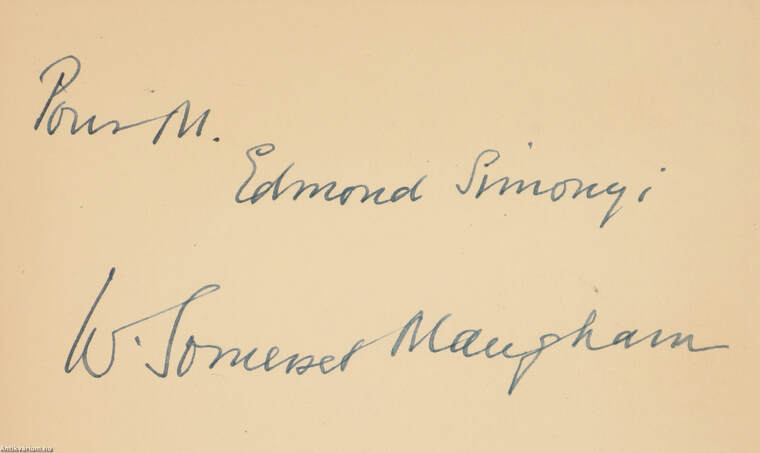 Pour M.
Edmond Simonyi
W. Somerset Maugham
Antikvarium.hu